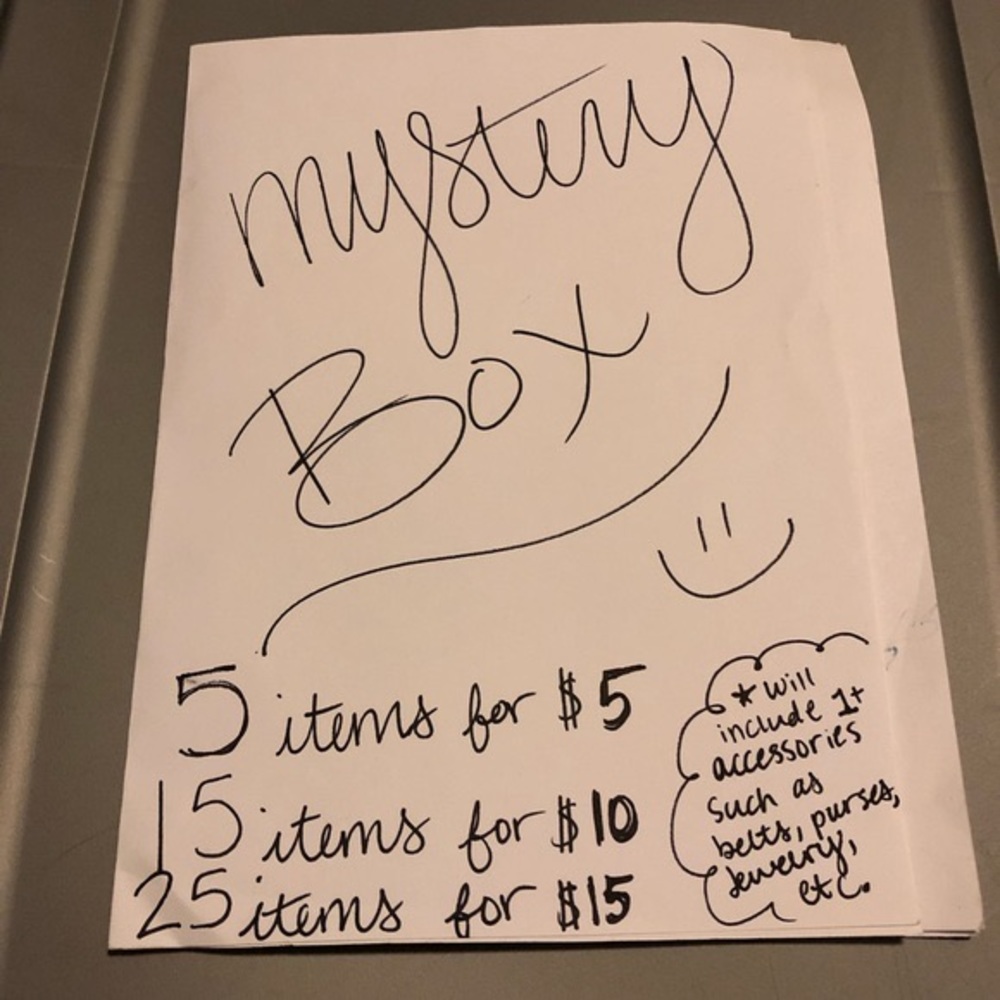 mystery
Box
5 items for $5
15 items for $10
25 items for $15
* will
include 1+
accessories
such as
belts, purses,
Jewelry,
etc.